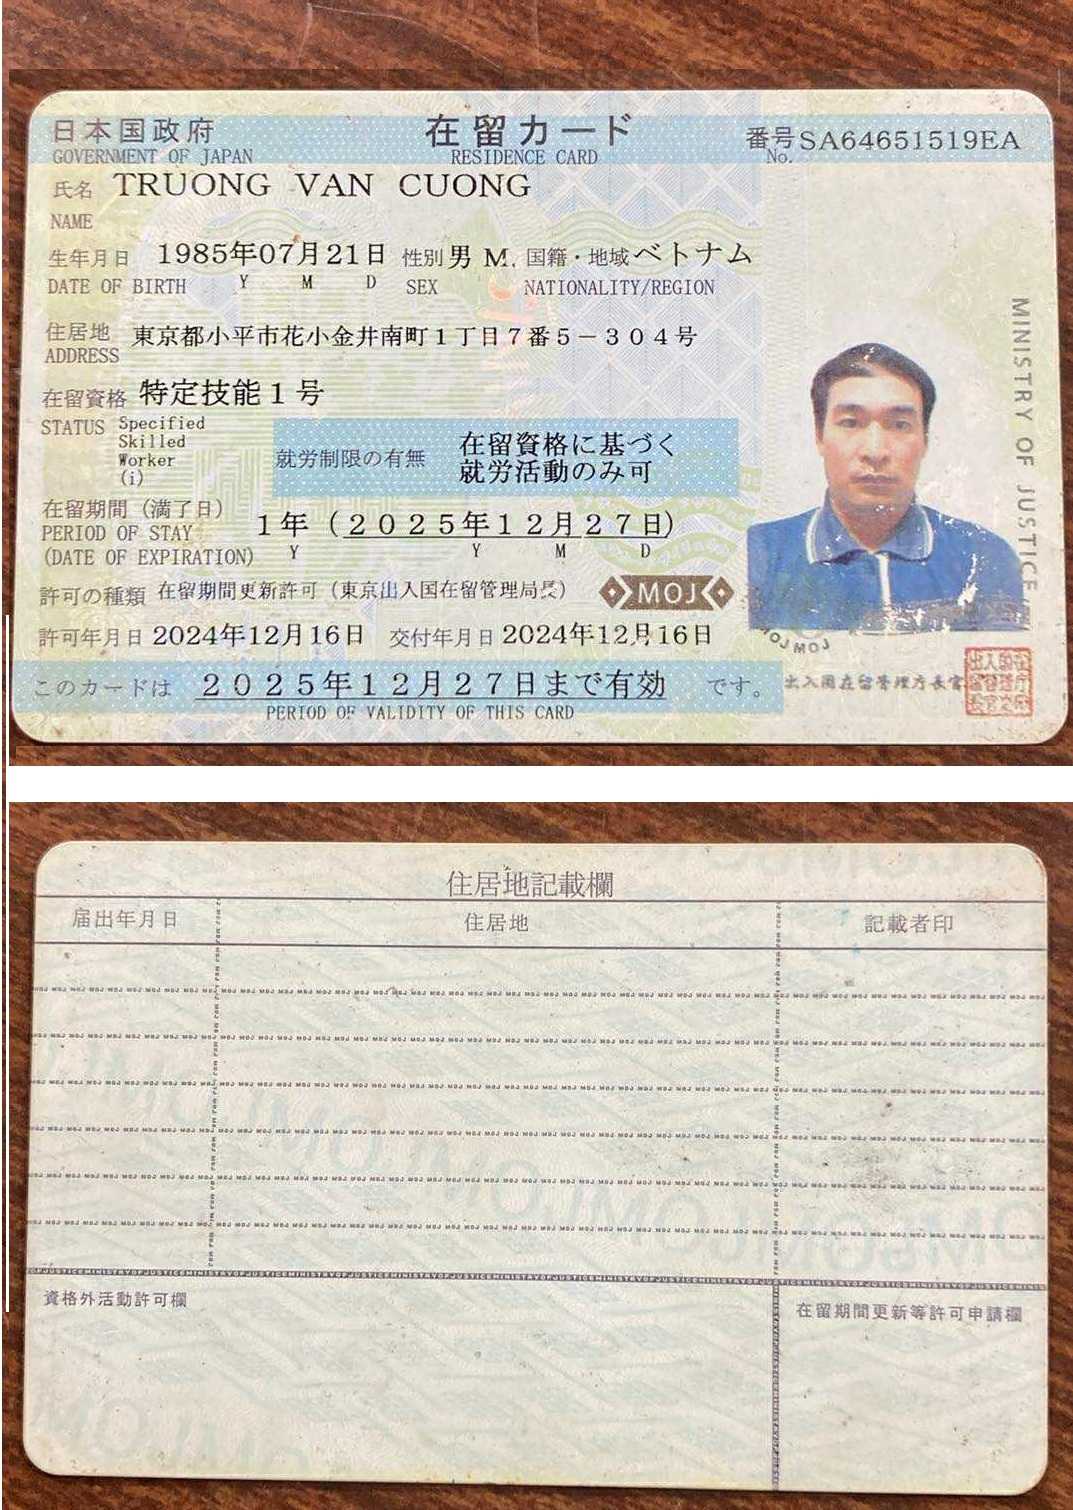 日本国政府 在留カード 番号 SA64651519EA
GOVERNMENT OF JAPAN RESIDENCE CARD No.
氏名 TRUONG VAN CUONG
NAME
生年月日 1985年07月21日 性別 男 M. 国籍・地域 ベトナム
DATE OF BIRTH Y M D SEX NATIONALITY/REGION
住居地 東京都小平市花小金井南町1丁目7番5-304号
ADDRESS
在留資格 特定技能1号
STATUS Specified
Skilled
Worker
(i)
就労制限の有無 在留資格に基づく
就労活動のみ可
在留期間(満了日) 1年(2025年12月27日)
PERIOD OF STAY
(DATE OF EXPIRATION) Y Y M D
許可の種類 在留期間更新許可(東京出入国在留管理局長)
MOJ
許可年月日 2024年12月16日 交付年月日 2024年12月16日
このカードは 2025年12月27日まで有効 です。
PERIOD OF VALIDITY OF THIS CARD
出入国在留管理庁長官
MINISTRY OF JUSTICE
住居地記載欄
届出年月日 住居地 記載者印
資格外活動許可欄 在留期間更新等許可申請欄